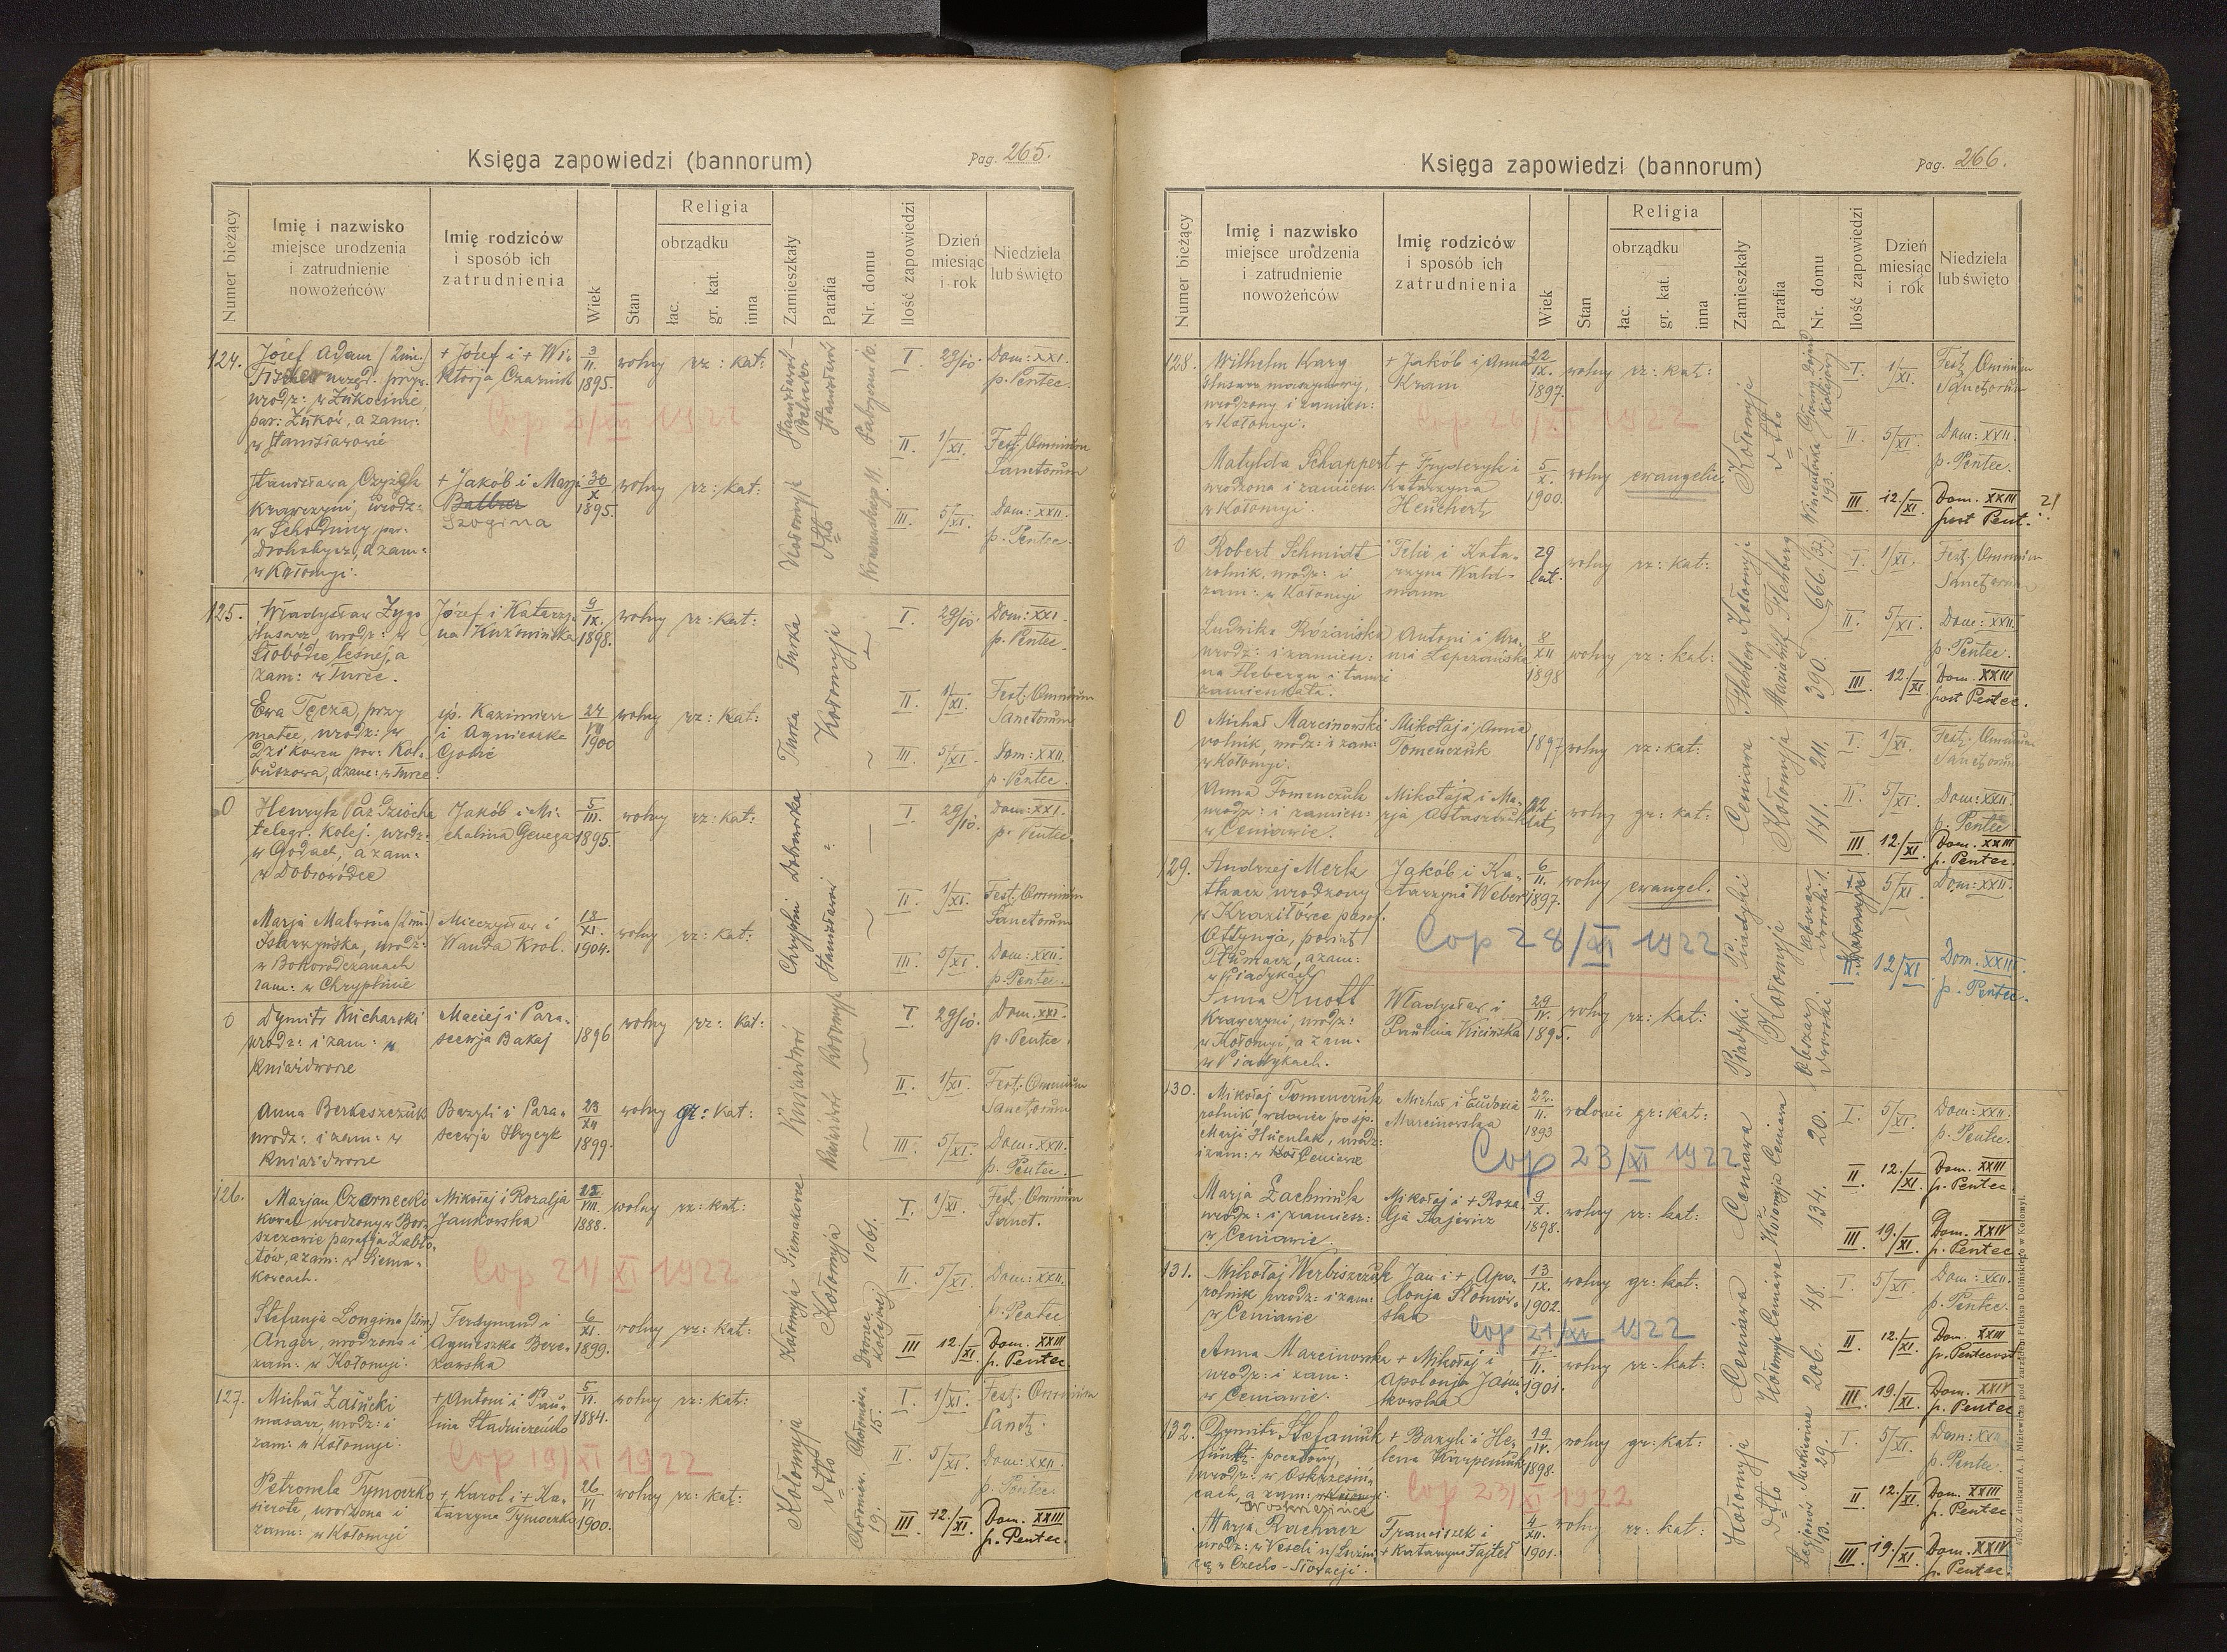 Księga zapowiedzi (bannorum)
Pag. 265.
Numer bieżący
Imię i nazwisko
miejsce urodzenia
i zatrudnienie
nowożeńców
Imię rodziców
i sposób ich
zatrudnienia
Wiek
Stan
Religia
obrządku
łac.
gr. kat.
inna
Zamieszkały
Parafia
Nr. domu
Ilość zapowiedzi
Dzień
miesiąc
i rok
Niedziela
lub święto
124. Józef Adam /2im./ + Józef i + Wi- 3/II. 1895. wolny rz: kat: I. 29/10. Dom: XXI. p. Pentec.
Fischer urzęd. pryw. ktorja Czarnik
urodz: w Żukocinie
par: Żuków, a zam:
w Stanisławowie
Cop 2/XII 1922
II. 1/XI. Fest: Omnium Sanctorum
Stanisława Czyżyk + Jakób i Marja 30/X 1895. wolny rz: kat: Kołomyja dtto Kraszewskiego 11. III. 5/XI. Dom: XXII. p. Pentec.
krawczyni, urodz:
w Schodnicy par.
Drohobycz, a zam:
w Kołomyi.
125. Władysław Zygo Józef i Katarzy- 9/IX. 1898. wolny rz: kat: Turka I. 29/10. Dom: XXI p. Pentec.
ślusarz, urodz: w na Kuźmińska
Słobódce leśnej, a
zam: w Turce.
II. 1/XI. Fest: Omnium Sanctorum
Ewa Tęcza, przy śp. Kazimierz 24/VII 1900 wolny rz: kat: Turka Kołomyja III. 5/XI. Dom: XXII. p. Pentec
matce, urodz: w i Agnieszka
Dzikowcu par: Kol- Gobić
buszowa, a zam: w Turce.
0 Henryk Paździocha Jakób i Mi- 5/III. 1895. wolny rz: kat: I. 29/10. Dom: XXI. p. Pentec
telegr. kolej. urodz: chalina Genega
w Godach, a zam:
w Dobrowódce
II. 1/XI. Fest: Omnium Sanctorum
Marja Malwina /2im:/ Mieczysław i 18/XI. 1904. wolny rz: kat: Chryplin Stanisławów III. 5/XI. Dom: XXII. p. Pentec.
urodz: Wanda Król.
w Bohorodczanach
zam: w Chryplinie
0 Dymitr Kucharski Maciej i Para- 1896 wolny rz: kat: I. 29/10. Dom: XXI. p. Pentec.
urodz: i zam: w scewja Bakaj
Kniaźdwore
II. 1/XI. Fest: Omnium Sanctorum
Anna Berkeszczuk Bazyli i Para- 23/XII 1899. wolny gr: kat: III. 5/XI. Dom: XXII. p. Pentec.
urodz: i zam: w scewja Hrycyk
Kniaźdwore
126. Marjan Czarnecki Mikołaj i Rozalja 22/VIII. 1888. wolny rz: kat: I. 1/XI. Fest. Omnium Sanct.
kowal urodzony w Bor- Jankowska
szczowie parafja Zabło-
tów, a zam: w Siema-
kowcach.
Cop 21/XI 1922
II. 5/XI. Dom: XXII. p. Pentec
Stefanja Longina /2im:/ Ferdynand i 6/XI. 1899. wolny rz: kat: Kołomyja Dworzec kolejowy III 12./XI. Dom. XXIII p. Pentec.
Anger, urodzona i Agnieszka Bere-
zam: w Kołomyi. zowska
127. Michał Załucki + Antoni i Pau- 5/VI. 1884. wolny rz: kat: I. 1/XI. Fest. Omnium Sanct:
masarz, urodz: i lina
zam: w Kołomyi.
Cop 19/XI 1922
II. 5/XI. Dom: XXII. p. Pentec.
Petronela Tymoczko + Karol i + Ka- 26/VI 1900. wolny rz: kat: Kołomyja dtto III. 12./XI. Dom. XXIII p. Pentec.
sierota, urodzona i tarzyna Tymoczko
zam: w Kołomyi
Księga zapowiedzi (bannorum)
Pag. 266.
Numer bieżący
Imię i nazwisko
miejsce urodzenia
i zatrudnienie
nowożeńców
Imię rodziców
i sposób ich
zatrudnienia
Wiek
Stan
Religia
obrządku
łac.
gr. kat.
inna
Zamieszkały
Parafia
Nr. domu
Ilość zapowiedzi
Dzień
miesiąc
i rok
Niedziela
lub święto
128. Wilhelm Karg + Jakób i Anna 22/IX. 1897. wolny rz: kat: I. 1/XI. Fest. Omnium Sanctorum
ślusarz maszynowy, Kram
urodzony i zamiesz:
w Kołomyi.
Cop 26/XI 1922
II. 5/XI. Dom: XXII. p. Pentec.
Matylda Schappert + Fryderyk i 5/X. 1900. wolny ewangelic. Kołomyja dtto III 12./XI. Dom. XXIII post Pent.
urodzona i zamiesz: Katarzyna
w Kołomyi. Heuchert
0 Robert Schmidt Felix i Kata- 29 lat. wolny rz: kat: I. 1/XI. Fest. Omnium Sanctorum
rolnik, urodz: i rzyna Wald-
zam: w Kołomyi mann
II. 5/XI. Dom: XXII. p. Pentec.
Ludwika Różańska Antoni i An- 8/XII 1898 wolny rz: kat: 390. III. 12./XI. Dom. XXIII post Pentec.
urodz: i zamiesz:
na Flebergu i tamże
zamieszkała.
0 Michał Marcinowski Mikołaj i Anna 1897 wolny rz: kat: 211. I. 1/XI. Fest. Omnium Sanctorum
rolnik, urodz: i zam: Tomenczuk
w Kołomyi.
II. 5/XI. Dom: XXII. p. Pentec
Anna Tomenczuk Mikołaja i Ma- 22 lat, wolny gr: kat: Ceniawa Kołomyja 141. III. 12./XI. Dom. XXIII p. Pentec.
urodz: i zamiesz: rja
w Ceniawie.
129. Andrzej Merk Jakób i Ka- 6/II. 1897. wolny ewangel. Piadyki 5/XI. Dom: XXII.
tkacz urodzony tarzyna Weber
paraf.
Ottynja, powiat
Tłumacz, a zam:
w Piadykach
Cop 28/XI 1922
II. 12/XI. Dom. XXIII. p. Pentec.
Anna Knott Władysław i 29/IV. 1895. wolny rz: kat: Piadyki Kołomyja Obszar dworski.
krawczyni, urodz: Paulina Kicińska
w Kołomyi, a zam.
w Piadykach.
130. Mikołaj Tomenczuk Michał i Eudoxia 22./II. 1893 wdowiec gr: kat: Ceniawa 20. I. 5/XI. Dom: XXII. p. Pentec.
rolnik, wdowiec po śp. Marcinowska
Marji Huculak, urodz:
i zam: w Ceniawie
Cop 23/XI 1922
II 12./XI. Dom. XXIII p. Pentec.
Marja Łachniuk Mikołaj i + Roza- 9/X. 1898. wolny rz: kat: Ceniawa 134. III 19./XI. Dom. XXIV p. Pentec.
urodz: i zamiesz: lja
w Ceniawie.
131. Mikołaj Werbiszczuk Jan i + Apo- 13/IX. 1902. wolny gr: kat: Ceniawa 48. I. 5/XI. Dom: XXII. p. Pentec.
rolnik urodz: i zam: lonja Słowiń-
w Ceniawie ska
Cop 21/XI 1922
II 12./XI. Dom. XXIII p. Pentecost
Anna Marcinowska + Mikołaj i 17./II. 1901. wolny rz: kat: Ceniawa 206. III. 19./XI. Dom. XXIV p. Pentec.
urodz: i zam: Apolonja Jan-
w Ceniawie. kowska
132. Dymitr Stefaniuk + Bazyli i He- 19/IV. 1898. wolny gr: kat: 29. I. 5/XI. Dom: XXII p. Pentec.
funkt. pocztowy, lena Karpeniuk
urodz: w Oskrzesin-
cach, a zam:
Cop 23/XI 1922
II 12./XI. Dom. XXIII p. Pentec.
Marja Franciszek i 4/XII. 1901. wolny rz: kat: Kołomyja dtto Legjonów 13. III. 19./XI. Dom. XXIV p. Pentec.
urodz: w Veseli n/ + Katarzyna Fajtel
w Czecho-Słowacji.
4750. Z drukarni A. J. Miziewicza pod zarządem Feliksa Dolińskiego w Kołomyi.